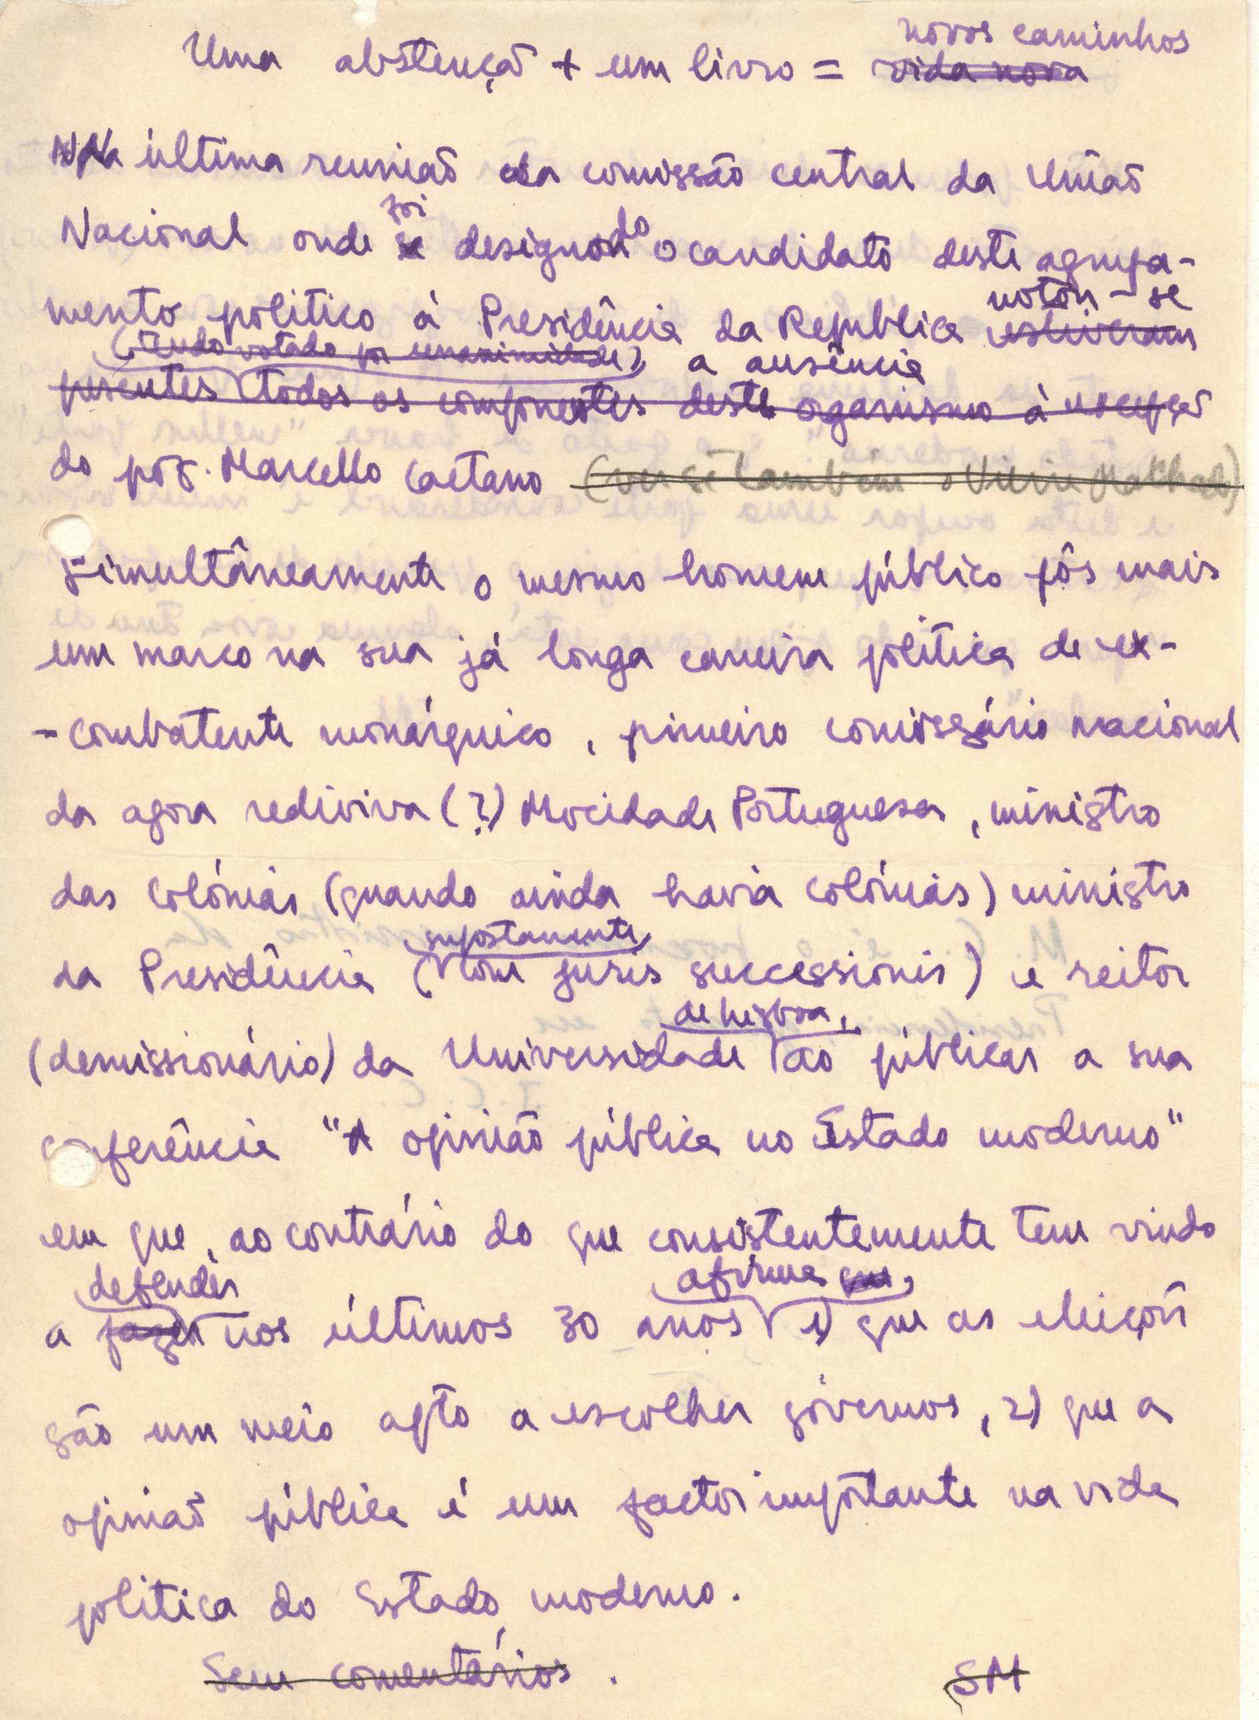 Uma abstenção + um livro = vida nova novos caminhos
Na última reunião da comissão central da União
Nacional onde foi designado o candidato deste agrupa-
mento politico à Presidência da Republica estiveram notou-se
(tudo votado por unanimidade) a ausência
presentes todos os componentes deste organismo à excepção
do prof. Marcello Caetano
Simultâneamente o mesmo homem público pôs mais
um marco na sua já longa carreira politica de ex-
-combatente monárquico, primeiro comissário nacional
da agora rediviva (?) Mocidade Portuguesa, ministro
das Colónias (quando ainda havia colónias) ministro
supostamente
da Presidência (com juris successionis) e reitor
de Lisboa,
(demissionário) da Universidade ao publicar a sua
conferência "A opinião pública no Estado moderno"
em que, ao contrário do que consistentemente tem vindo
defender afirma que
a fazer nos últimos 30 anos 1) que as eleições
são um meio apto a escolher governos, 2) que a
opinião pública é um factor importante na vida
politica do Estado moderno.
Sem comentários. SM